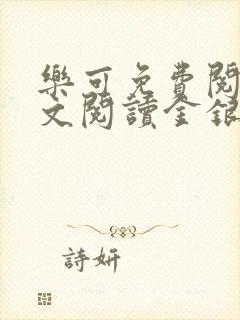 樂可免費閱
文閱讀金銀
詩妍